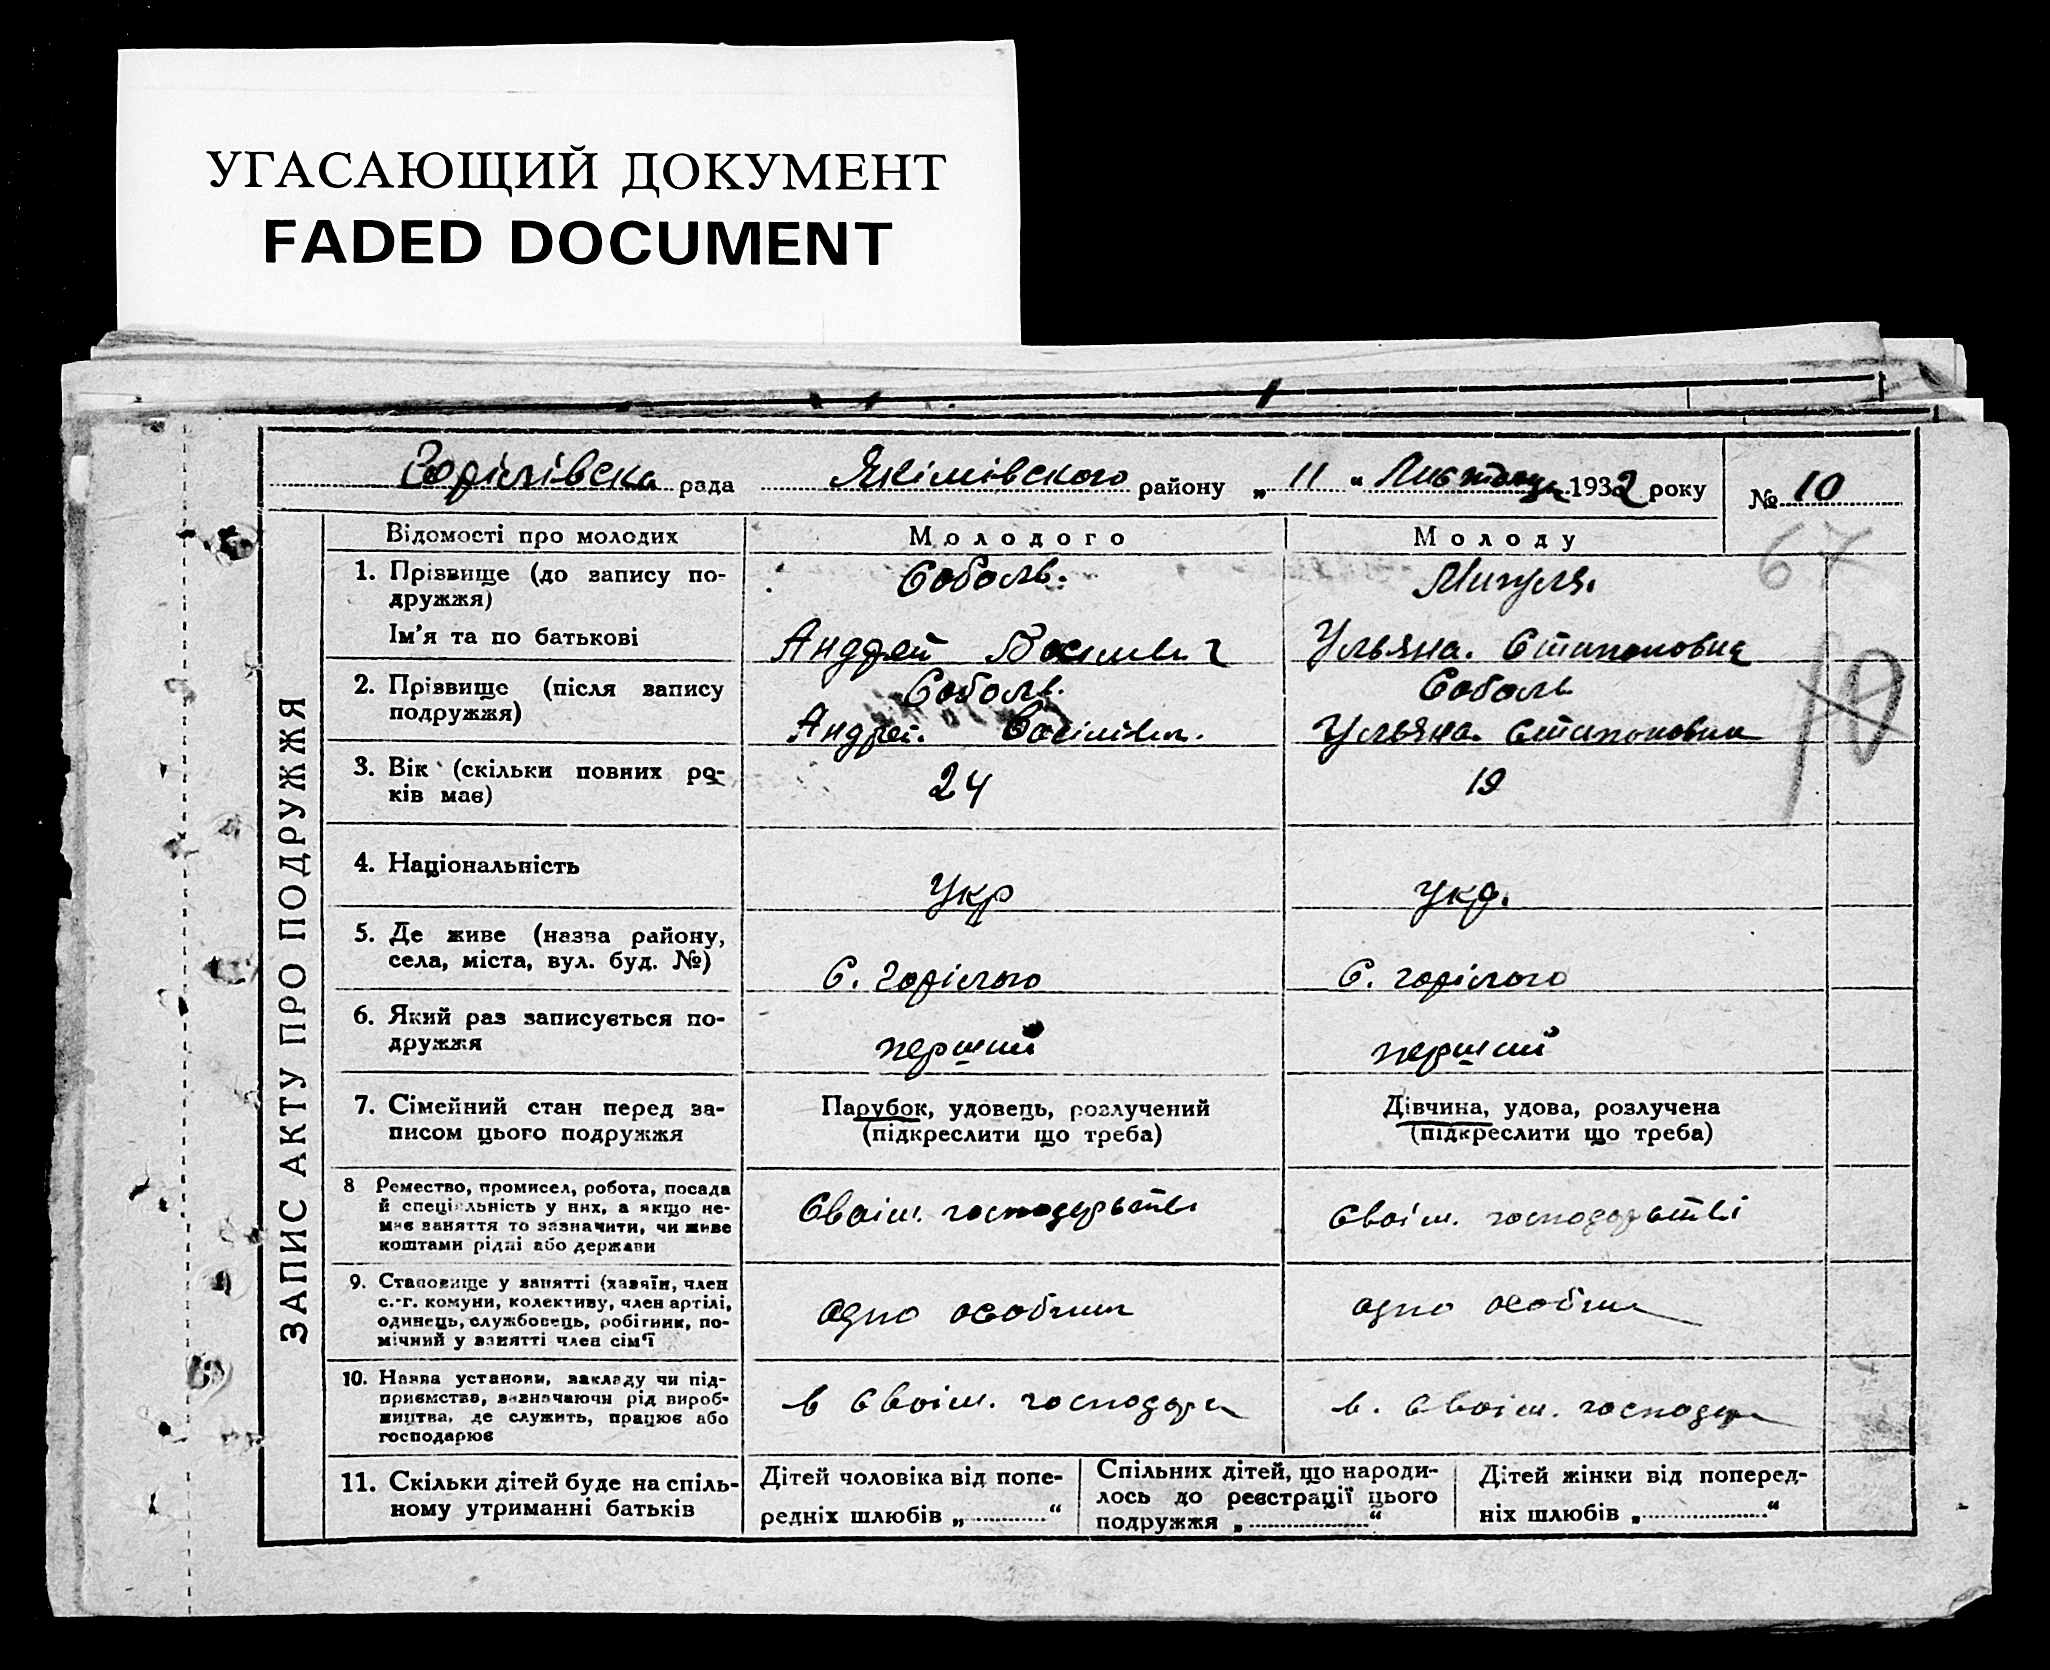 УГАСАЮЩИЙ ДОКУМЕНТ
FADED DOCUMENT
Горілівска рада Якімівского району „ 11 “ Листопада 1932 року № 10
67
10
ЗАПИС АКТУ ПРО ПОДРУЖЖЯ
Відомості про молодих
Молодого
Молоду
1. Прізвище (до запису по-
дружжя)
Соболь.
Ім’я та по батькові
Андрей
Ульяна. Стипоновна
2. Прізвище (після запису
подружжя)
Соболь.
Андрей.
Соболь
Ульяна. Стипоновна
3. Вік (скільки повних ро-
ків має)
24
19
4. Національність
Укр
Укр.
5. Де живе (назва району,
села, міста, вул. буд. №)
С. Горілого
С. горілого
6. Який раз записується по-
дружжя
перший
перший
7. Сімейний стан перед за-
писом цього подружжя
Парубок, удовець, розлучений
(підкреслити що треба)
Дівчина, удова, розлучена
(підкреслити що треба)
8 Ремество, промисел, робота, посада
й спеціяльність у них, а якщо не-
має заняття то зазначити, чи живе
коштами рідні або держави
Своім. господарстві
Своім. господарстві
9. Становище у занятті (хазяїн, член
с.-г. комуни, колективу, член артілі,
одинець, службовець, робітник, по-
мічний у занятті член сім’ї
одно особник
одно особник
10. Назва установи, закладу чи під-
приємства, визначаючи рід вироб-
ництва, де служить, працює або
господарює
в своім. господар
в. своім. господар
11. Скільки дітей буде на спіль-
ному утриманні батьків
Дітей чоловіка від попе-
редніх шлюбів „ “
Спільних дітей, що народи-
лось до реєстрації цього
подружжя „ “
Дітей жінки від поперед-
ніх шлюбів „ “